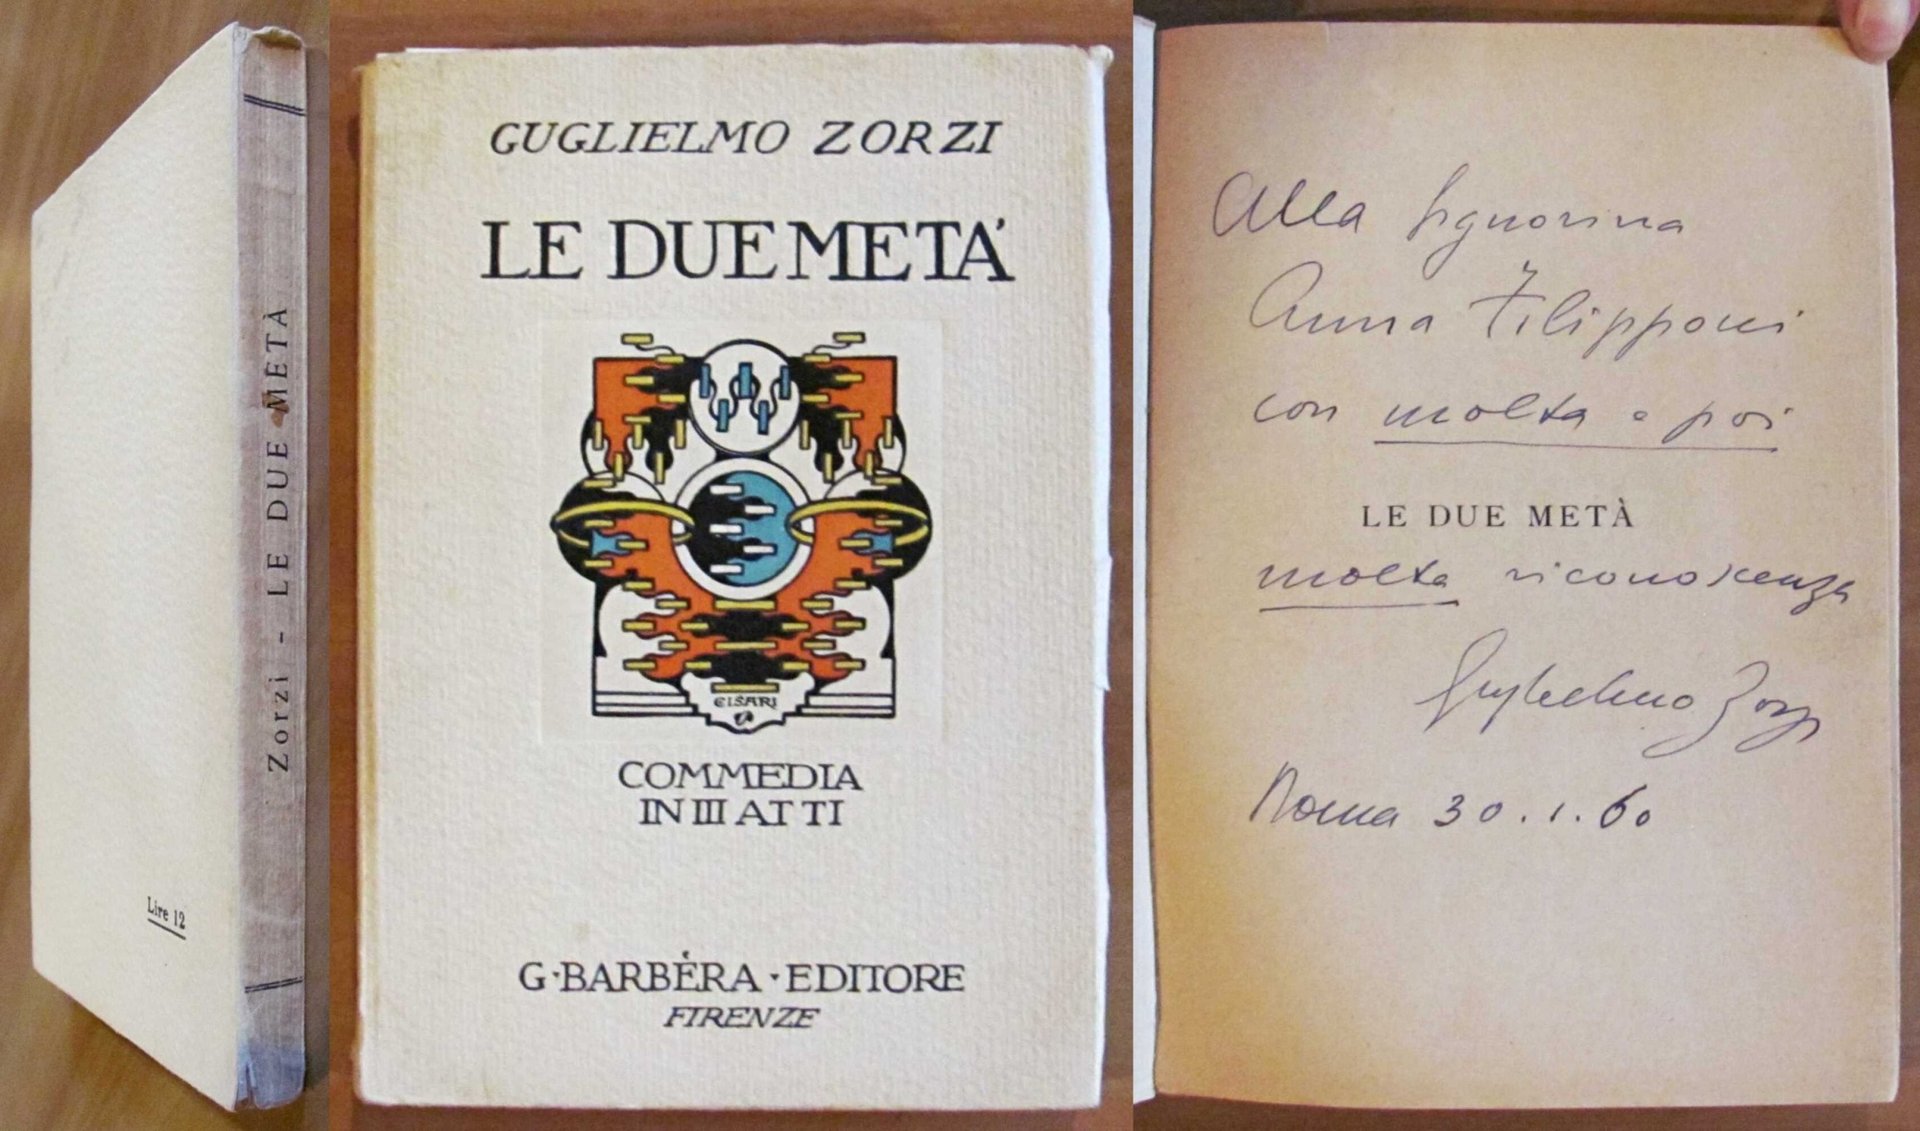 Zorzi - LE DUE METÀ
Lire 12
GUGLIELMO ZORZI
LE DUE META'
CISARI
COMMEDIA
IN III ATTI
G·BARBÈRA·EDITORE
FIRENZE
Alla Signorina
Anna Filipponi
con molta e poi
LE DUE METÀ
molta riconoscenza
Guglielmo Zorzi
Roma 30.1.60